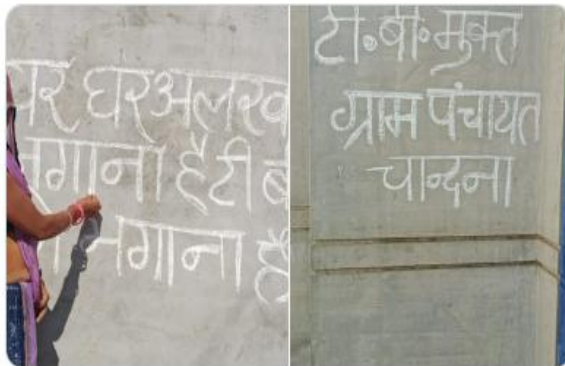 घर घर अलख
जगाना है टी ब
गाना है
टी.बी. मुक्त
ग्राम पंचायत
चान्दना